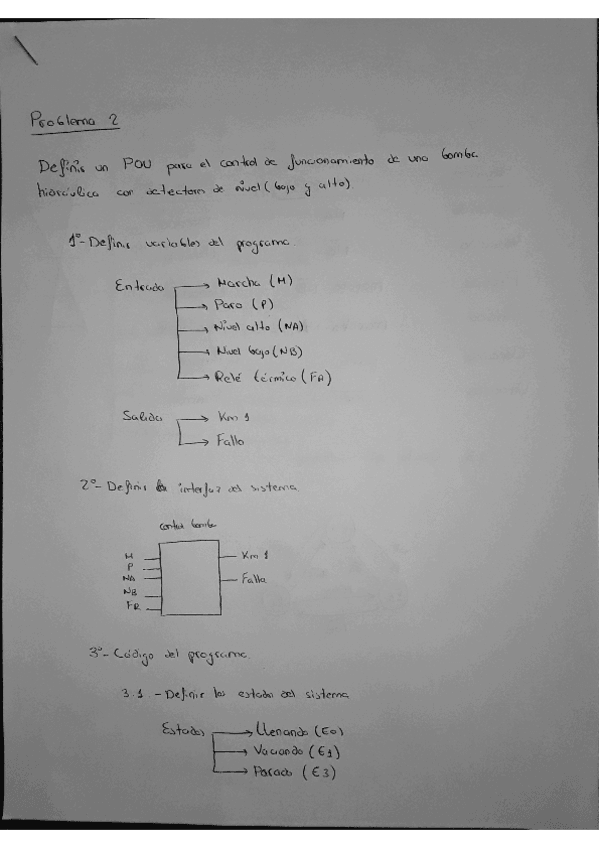 Problema 2
Definir un POU para el control de funcionamiento de una bomba
hidráulica con detectores de nivel (bajo y alto).
1º- Definir variables del programa.
Entrada
Marcha (M)
Paro (P)
Nivel alto (NA)
Nivel bajo (NB)
Relé térmico (FR)
Salida
Km 1
Fallo
2º- Definir la interfaz del sistema
control bomba
M
P
NA
NB
FR
Km 1
Fallo
3º- Código del programa.
3.1.- Definir los estados del sistema
Estados
Llenando (E0)
Vaciando (E1)
Parado (E3)